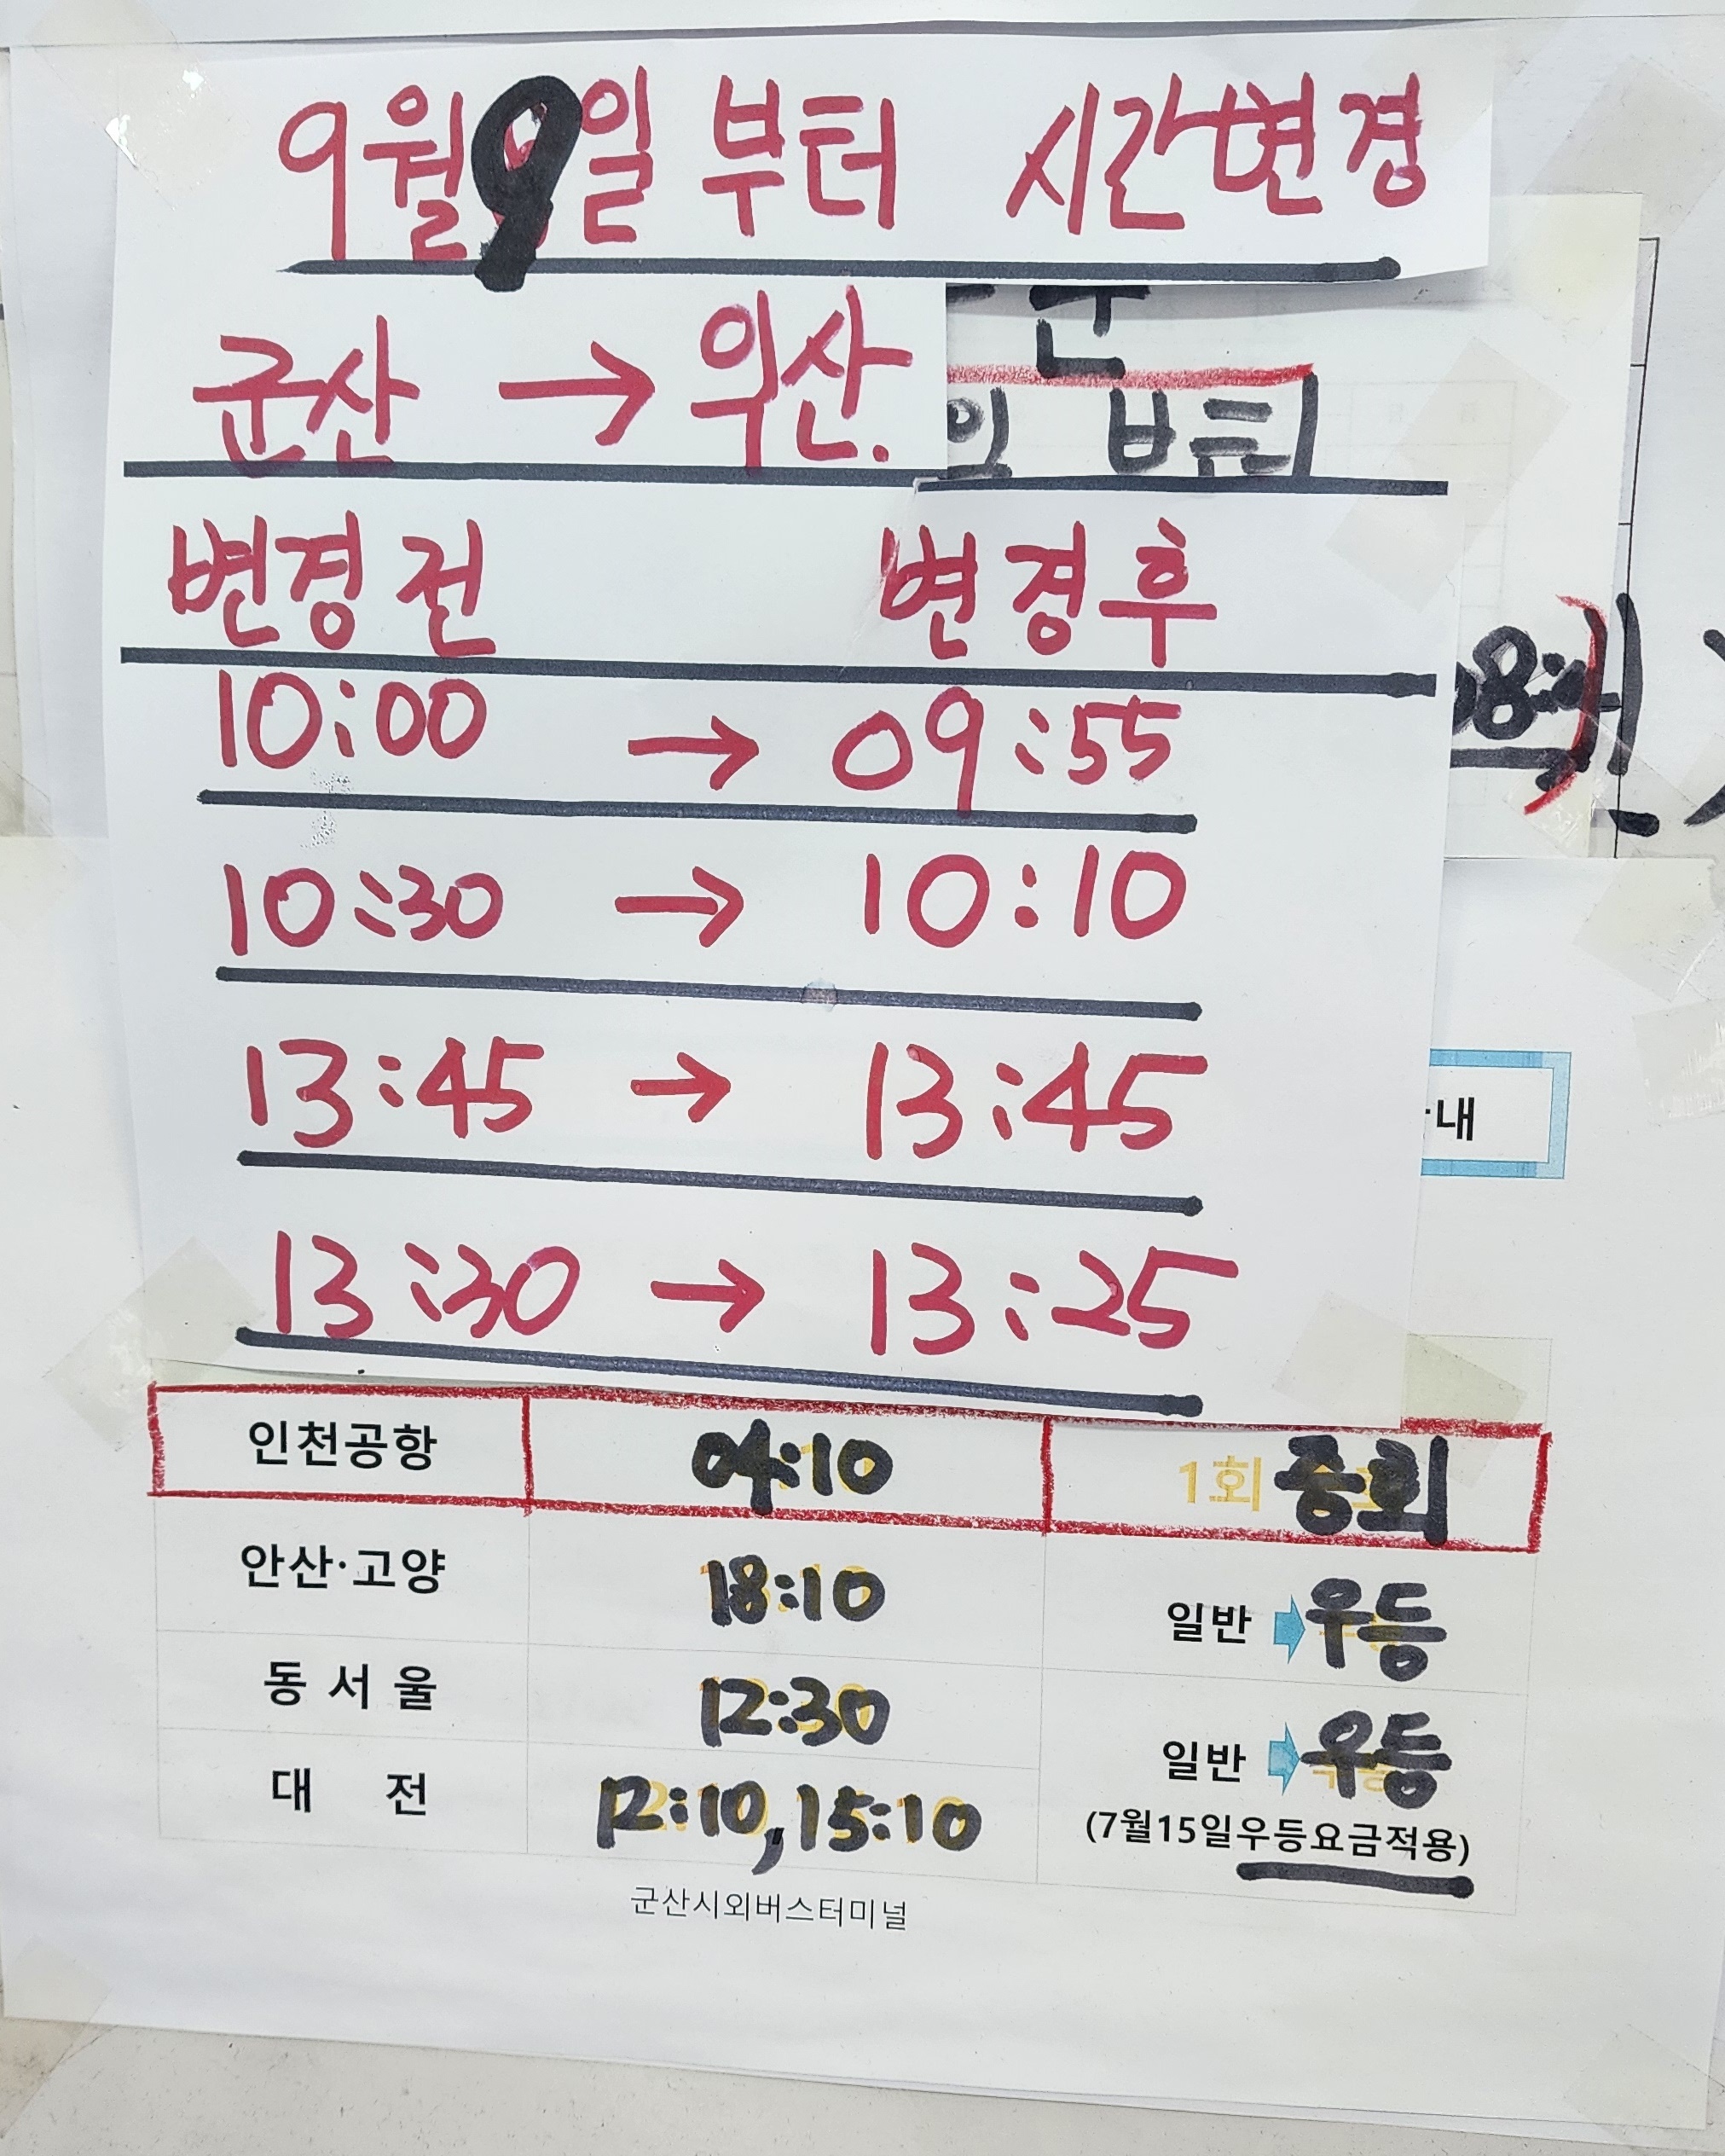 9월 9일 부터 시간변경
군산 → 익산.
일 부터
변경전 변경후
10:00 → 09:55
10:30 → 10:10
13:45 → 13:45
13:30 → 13:25
내
인천공항 04:10 1회 증회
안산·고양 18:10 일반 우등
동서울 12:30 일반 우등
대전 12:10, 15:10 (7월15일우등요금적용)
군산시외버스터미널